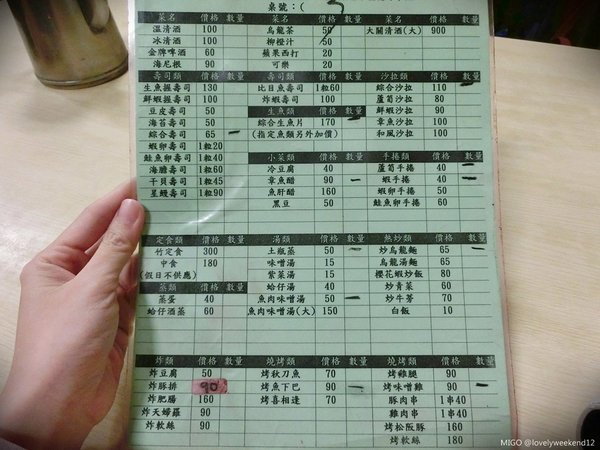 桌號:( 3
菜名 價格 數量 菜名 價格 數量 菜名 價格 數量
溫清酒 100 烏龍茶 50 大關清酒(大) 900
冰清酒 100 柳橙汁 50
金牌啤酒 60 蘋果西打 20
海尼根 90 可樂 20
壽司類 價格 數量 壽司類 價格 數量 沙拉類 價格 數量
生魚握壽司 130 比目魚壽司 1粒60 綜合沙拉 110
鮮蝦握壽司 100 炸蝦壽司 100 蘆筍沙拉 80
豆皮壽司 50 生魚類 價格 數量 鮮蝦沙拉 90
海苔壽司 50 綜合生魚片 170 章魚沙拉 100
綜合壽司 65 (指定魚類另外加價) 和風沙拉 100
蝦卵壽司 1粒20
鮭魚卵壽司 1粒40 小菜類 價格 數量 手捲類 價格 數量
海膽壽司 1粒60 冷豆腐 40 蘆筍手捲 40
干貝壽司 1粒45 章魚醋 90 蝦手捲 40
星鰻壽司 1粒90 魚肝醋 160 蝦卵手捲 50
黑豆 50 鮭魚卵手捲 60
定食類 價格 數量 湯類 價格 數量 熱炒類 價格 數量
竹定食 300 土瓶蒸 50 炒烏龍麵 65
中食 180 味噌湯 15 烏龍湯麵 65
(假日不供應) 紫菜湯 15 櫻花蝦炒飯 80
蒸類 價格 數量 蛤仔湯 40 炒青菜 60
蒸蛋 40 魚肉味噌湯 50 炒牛蒡 70
蛤仔酒蒸 60 魚肉味噌湯(大) 150 白飯 10
炸類 價格 數量 燒烤類 價格 數量 燒烤類 價格 數量
炸豆腐 50 烤秋刀魚 70 烤雞腿 90
炸豚排 90 烤魚下巴 90 烤味噌雞 90
炸肥腸 160 烤喜相逢 70 豚肉串 1串40
炸天婦羅 90 雞肉串 1串40
炸軟絲 90 烤松阪豚 160
烤軟絲 180
MIGO @lovelyweekend12